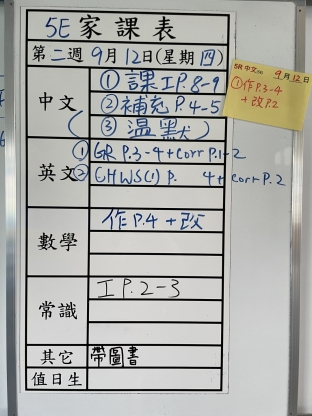 5E 家課表
第二週 9月12日(星期四)
中文
① 課工P.8-9
② 補充 P.4-5
(③ 溫默)
英文
① GR P.3-4+corr P.1-2
② GHWS(1) P. 4+corr P.2
數學
作P.4 +改
常識
工P.2-3
其它
帶圖書
值日生
5R 中文 9月12日
①作P.3-4
+改P.2